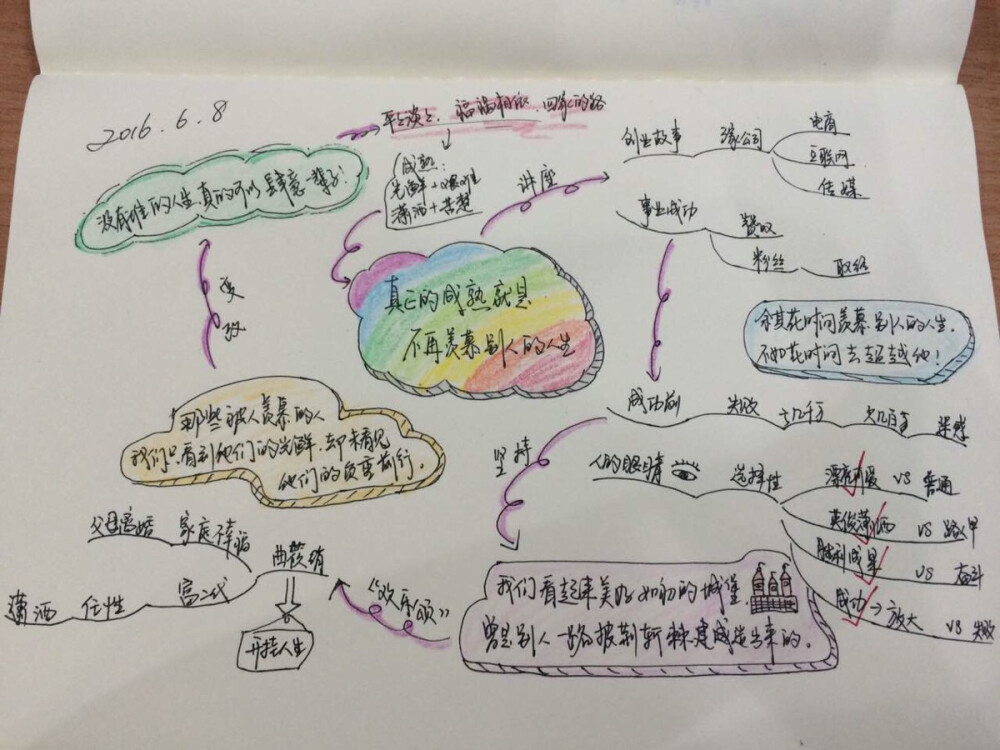 2016.6.8
平平淡淡、福祸相依、回家的路
成熟:
光鲜+艰难
潇洒+苦楚
没有谁的人生,真的可以肆意一辈子!
讲座
创业故事 3家公司
电商
互联网
传媒
事业成功 赞叹
粉丝 取经
真正的成熟就是
不再羡慕别人的人生
与其花时间羡慕别人的人生,
不如花时间去超越他!
那些被人羡慕的人
我们只看到他们的光鲜,却未看见
他们的负重前行。
成功前 失败 亏几千万 欠几百万
坚持
人的眼睛 选择性
漂亮可爱 VS 普通
英俊潇洒 VS 路人甲
胜利成果 VS 奋斗
成功→放大 VS 失败
我们看起来美好如初的城堡,
曾是别人一路披荆斩棘建成造出来的。
"欢乐颂"
曲筱绡
家庭不幸福 父母离婚
富二代 任性 潇洒
开挂人生